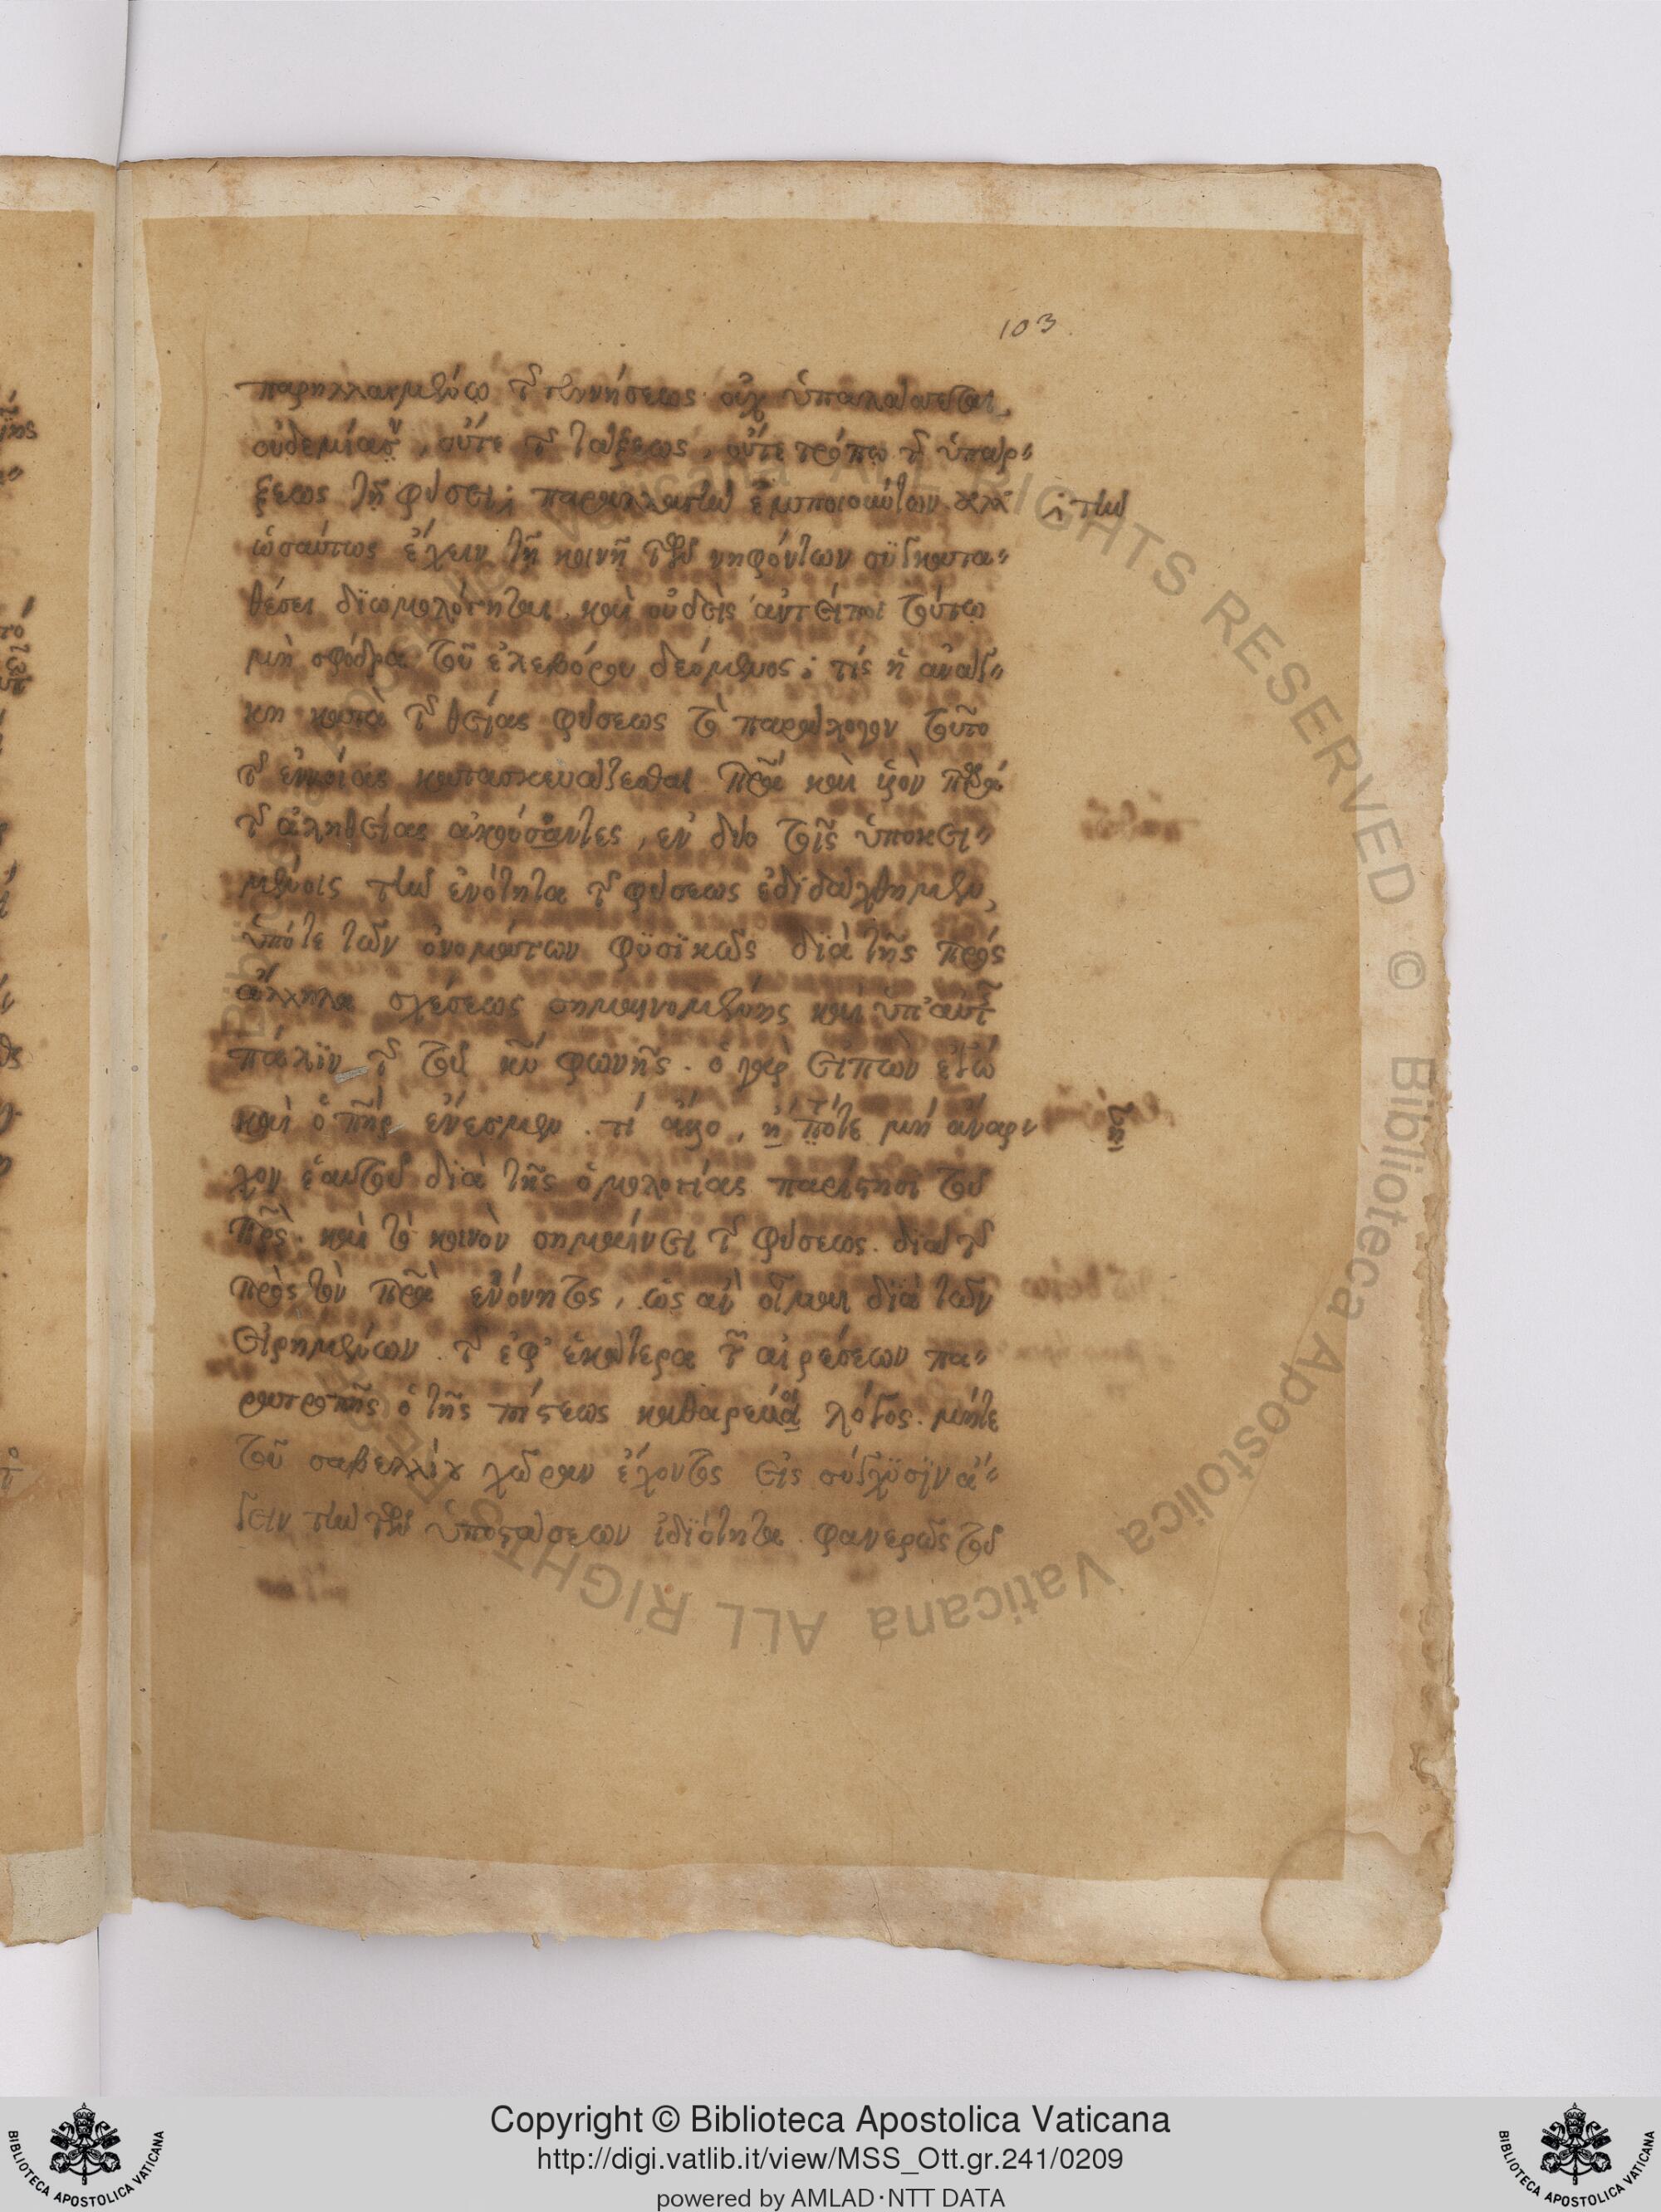 103
παρηλλαγμένῳ τῆς γεννήσεως οὐχ ὑπαλλάττεται
οὐδεμίαν, οὔτε τῆς τάξεως, οὔτε τρόπῳ τῆς ὑπάρ-
ξεως τῇ φύσει· παραλλαγὴν ἐμποιούντων ἀλλ' τὴν
ὡσαύτως ἔχειν τῇ κοινῇ τῶν νηφόντων συγκατα-
θέσει διωμολόγηται, καὶ οὐδεὶς ἀντείποι τούτω
μὴ σφόδρα τοῦ ἐλεβόρου δεόμενος· τίς ἡ ἀνάγ-
κη κατὰ τῆς θείας φύσεως τὸ παράλογον τοῦτο
τῆς ἐννοίας κατασκευάζεσθαι πρα καὶ υἱὸν παρὰ
τῆς ἀληθείας ἀκούσαντες, ἐν δύο τοῖς ὑποκει-
μένοις τὴν ἑνότητα τῆς φύσεως ἐδιδάχθημεν,
ὑπότε τῶν ὀνομάτων φυσικῶς διὰ τῆς πρὸς
ἄλληλα σχέσεως σημαινομένης καὶ ὑπ' αὐτῆς
πάλιν τῆς τοῦ κυ φωνῆς. ὁ γὰρ εἰπὼν ἐγώ
καὶ ὁ πηρ ἕν ἐσμεν. τί ἄλλο, ἢ πότε μὴ ἄναρ-
χον ἑαυτοῦ διὰ τῆς ὁμολογίας παρίστησι τοῦ
πρς. καὶ τὸ κοινὸν σημαίνει τῆς φύσεως. διὰ τῆς
πρὸς τὸν πρα ἑνότητος, ὡς ἂν οἶμαι διὰ τῶν
εἰρημένων τῆς ἐφ' ἑκάτερα τῶν αἱρέσεων πα-
ρατροπῆς ὁ τῆς πίστεως καθαρεύοι λόγος. μήτε
τοῦ σαβελλίου χώραν ἔχοντος εἰς σύγχυσιν ἄ-
γειν τὴν τῶν ὑποστάσεων ἰδιότητα. φανερῶς τοῦ
Copyright © Biblioteca Apostolica Vaticana
http://digi.vatlib.it/view/MSS_Ott.gr.241/0209
powered by AMLAD·NTT DATA
BIBLIOTECA APOSTOLICA VATICANA
BIBLIOTECA APOSTOLICA VATICANA
© Biblioteca Apostolica Vaticana ALL RIGHTS RESERVED